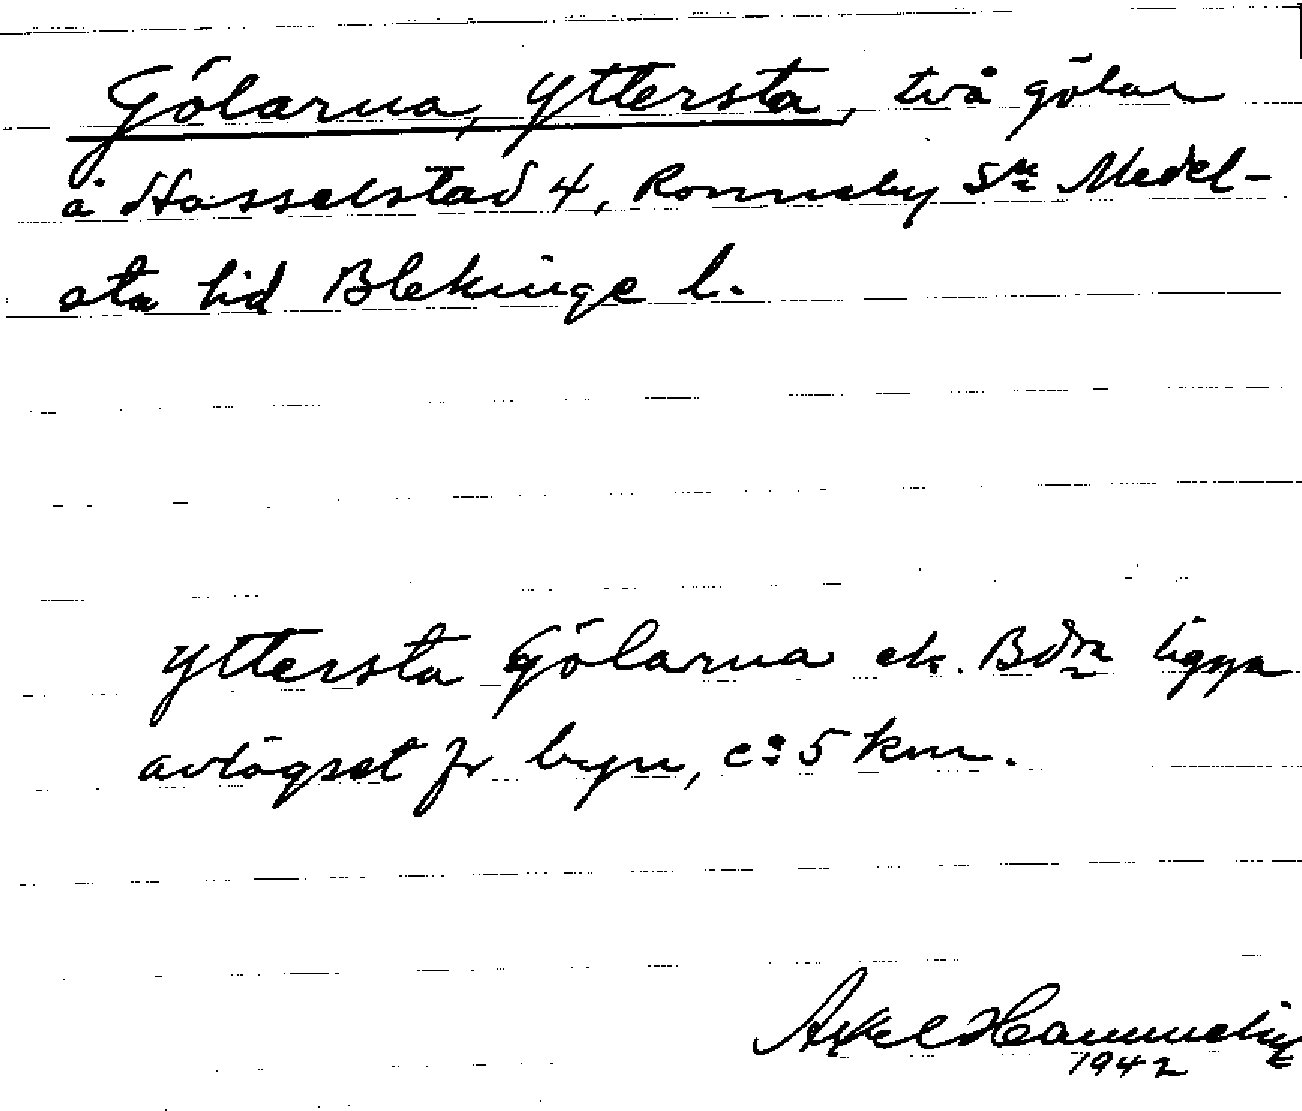 Gölarna, Yttersta, två gölar
å Hasselstad 4, Ronneby Sn Medel-
sta hd Blekinge l.
Yttersta Gölarna ek. Bdn ligga
avlägset fr byn, c:a 5 km.
Axel Hammelin
1942